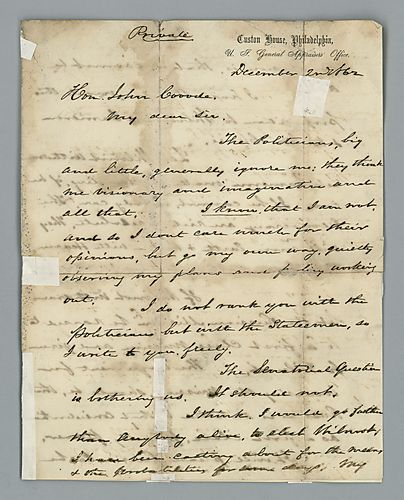 Private
Custom House, Philadelphia,
U. S. General Appraisers' Office,
December 2nd 1862
Hon. John Covode.
My dear Sir.
The Politicians, big
and little, generally ignore me: they think
me visionary and imaginative and
all that. I know, that I am not
and so I dont care much for their
opinions, but go my own way, quietly
observing my plans and policy working
out.
I do not rank you with the
politicians but with the Statesmen, so
I write to you, freely.
The Senatorial Question
is bothering us. It should not.
I think, I would go further
than anybody alive, to elect Wilmot,
I have been casting about for the means
& the probabilities for some days. My